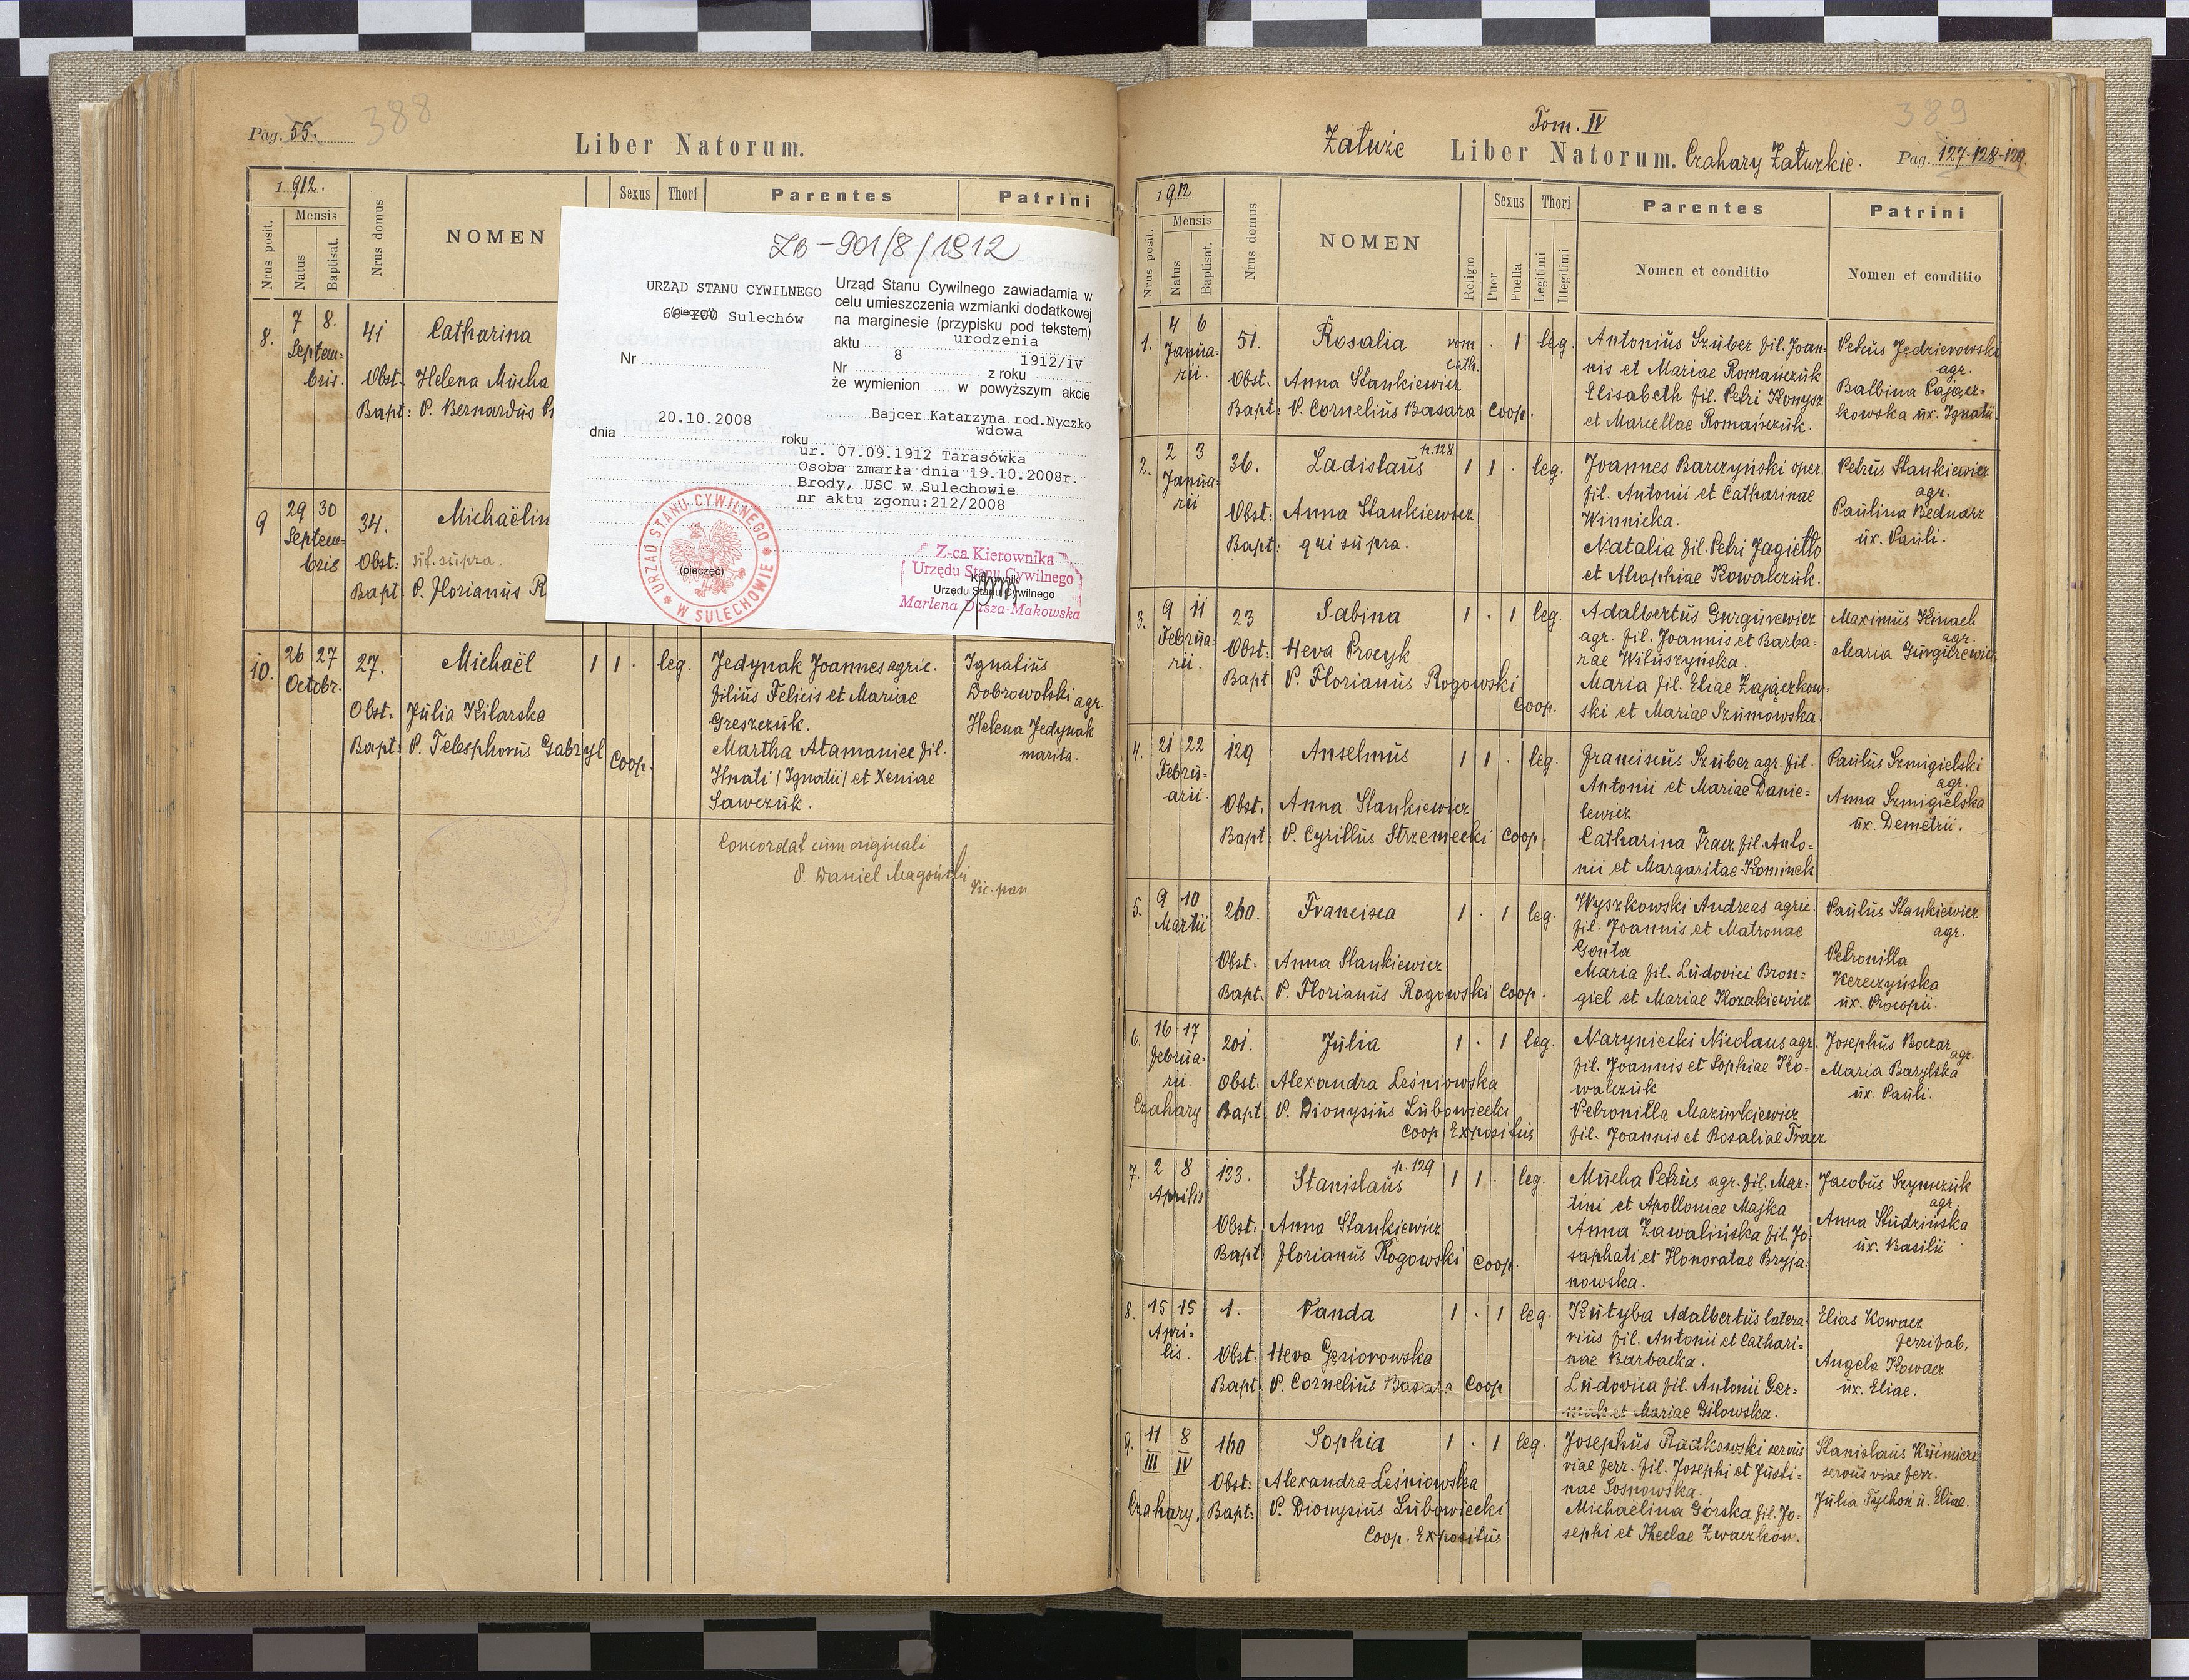 Pag. 55. 388
Liber Natorum.
1912.
Nrus posit.
Mensis
Natus
Baptisat.
Nrus domus
NOMEN
Sexus
Thori
Parentes
Patrini
8. 7 8. Septem-
bris.
41 Catharina
Obst. Helena Mucha
Bapt: P. Bernardus
9 29 30 Septem-
bris
34. Michaëlin
Obst: ut supra.
Bapt: P. Florianus R
10. 26 27 Octobr.
27. Michaël 1 1 . leg.
Obst. Julia Kilarska
Bapt: P. Telesphorus Gabryl Coop.
Jedynak Joannes agric.
filius Felicis et Mariae
Greszczuk.
Martha Atamaniec fil.
Hnati (Ignatii) et Xeniae
Sawczuk.
Ignatius
Dobrowolski agr.
Helena Jedynak
marita.
Concordat cum originali
P. Daniel Magoński
Vic. par.
ZB-901/8/1912
URZĄD STANU CYWILNEGO
66-100 Sulechów
(pieczęć)
Nr
Urząd Stanu Cywilnego zawiadamia w
celu umieszczenia wzmianki dodatkowej
na marginesie (przypisku pod tekstem)
aktu urodzenia
Nr 8 z roku 1912/IV
że wymienion w powyższym akcie
Bajcer Katarzyna rod.Nyczko
wdowa
dnia 20.10.2008 roku
ur. 07.09.1912 Tarasówka
Osoba zmarła dnia 19.10.2008r.
Brody, USC w Sulechowie
nr aktu zgonu:212/2008
URZĄD STANU CYWILNEGO
W SULECHOWIE
(pieczęć)
Z-ca Kierownika
Urzędu Stanu Cywilnego
Kierownik
Urzędu Stanu Cywilnego
Marlena Dusza-Makowska
Tom. IV 389
Załuże Liber Natorum. Czahary Załuzkie. Pag. 127-128-129.
1912
Nrus posit.
Mensis
Natus
Baptisat.
Nrus domus
NOMEN
Religio
Sexus
Puer
Puella
Thori
Legitimi
Illegitimi
Parentes
Nomen et conditio
Patrini
Nomen et conditio
1. 4 6 Janua-
rii.
51. Rosalia rom. cath. . 1 leg.
Obst. Anna Stankiewicz
Bapt: P. Cornelius Basara Coop.
Antonius Szuber fil. Joan-
nis et Mariae Romańczuk
Elisabeth fil. Petri Konysz
et Marcellae Romańczuk.
Petrus Jędzierowski
agr.
Balbina Zając-
kowska ux. Ignatii.
2. 2 3 Janua-
rii
36. Ladislaus p.128 1 1 . leg.
Obst: Anna Stankiewicz
Bapt: qui supra.
Joannes Barczyński oper.
fil. Antonii et Catharinae
Winnicka.
Natalia fil. Petri Jagiełło
et Alsophiae Kowalczuk.
Petrus Stankiewicz
agr.
Paulina Bednarz
ux. Pauli.
3. 9 11 Februa-
rii.
23 Sabina 1 . 1 leg.
Obst: Heva Procyk
Bapt P. Florianus Rogowski
Coop.
Adalbertus Gurgurewicz
agr. fil. Joannis et Barba-
rae Wituszyńska.
Maria fil. Eliae Zajączkow-
ski et Mariae Szumowska.
Maximus Kinach
agr.
Maria Gurgurewicz
4. 21 22 Febru-
arii.
129 Anselmus 1 1 . leg.
Obst. Anna Stankiewicz
Bapt: P. Cyrillus Strzemecki Coop.
Franciscus Szuber agr. fil.
Antonii et Mariae Danie-
lewicz
Catharina Tracz fil. Anto-
nii et Margaritae Kominek
Paulus Szmigielski
agr.
Anna Szmigielska
ux. Demetrii.
5. 9 10 Martii
260. Francisca 1 . 1 leg.
Obst. Anna Stankiewicz
Bapt. P. Florianus Rogowski Coop.
Wyszkowski Andreas agric.
fil. Joannis et Matronae
Gonta
Maria fil. Ludovici Bron-
giel et Mariae Kozakiewicz
Paulus Stankiewicz
agr.
Petronilla
Kereczyńska
ux. Procopii.
6. 16 17 Februa-
rii.
Czahary
201. Julia 1 . 1 leg.
Obst. Alexandra Leśniowska
Bapt P. Dionysius Lubowiecki
Coop. Expositus
Naryniecki Nicolaus agr.
fil. Joannis et Sophiae Ko-
walczuk
Petronilla Mazurkiewicz
fil. Joannis et Rosaliae Tracz
Josephus Boczar
agr.
Maria Barylska
ux. Pauli.
7. 2 8 Aprilis
133. Stanislaus p.129 1 1 . leg.
Obst: Anna Stankiewicz
Bapt: Florianus Rogowski Coop.
Mucha Petrus agr. fil. Mar-
tini et Apolloniae Majka
Anna Zawalińska fil. Jo-
saphati et Honoratae Bryja-
nowska.
Jacobus Szymczuk
agr.
Anna Studzińska
ux. Basilii
8. 15 15 Apri-
lis.
1. Vanda 1 . 1 leg.
Obst: Heva Gęsiorowska
Bapt. P. Cornelius Basara Coop
Kutyba Adalbertus latera-
rius fil. Antonii et Cathari-
nae Barbacka.
Ludovica fil. Antonii Ger-
et Mariae Gilowska.
Elias Kowacz
ferrifab.
Angela Kowacz
ux. Eliae.
9. 11 III 8 IV
Czahary.
160 Sophia 1 . 1 leg.
Obst: Alexandra Leśniowska
Bapt: P. Dionysius Lubowiecki
Coop. Expositus
Josephus Radkowski servus
viae ferr. fil. Josephi et Justi-
nae Sosnowska.
Michaëlina Górska fil. Jo-
sephi et Theclae Zwaczków.
Stanislaus Kuśmierz
servus viae ferr.
Julia Tychoń u. Eliae.